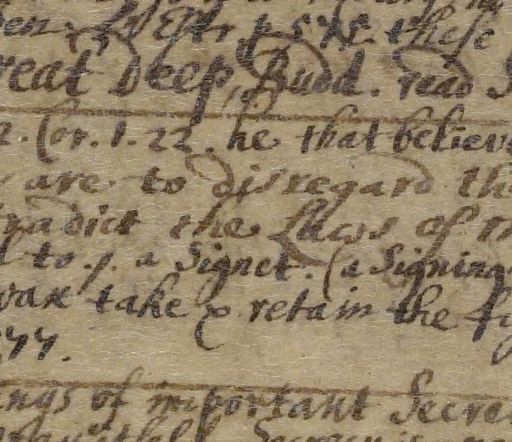 these
reat Deep, Budd. read
2. Cor. 1. 22. he that believ
are to disregard th
radict the Laws of m
d to. s. a Signet. (a Signing
wax take & retain the fi
77.
ings of important Secre